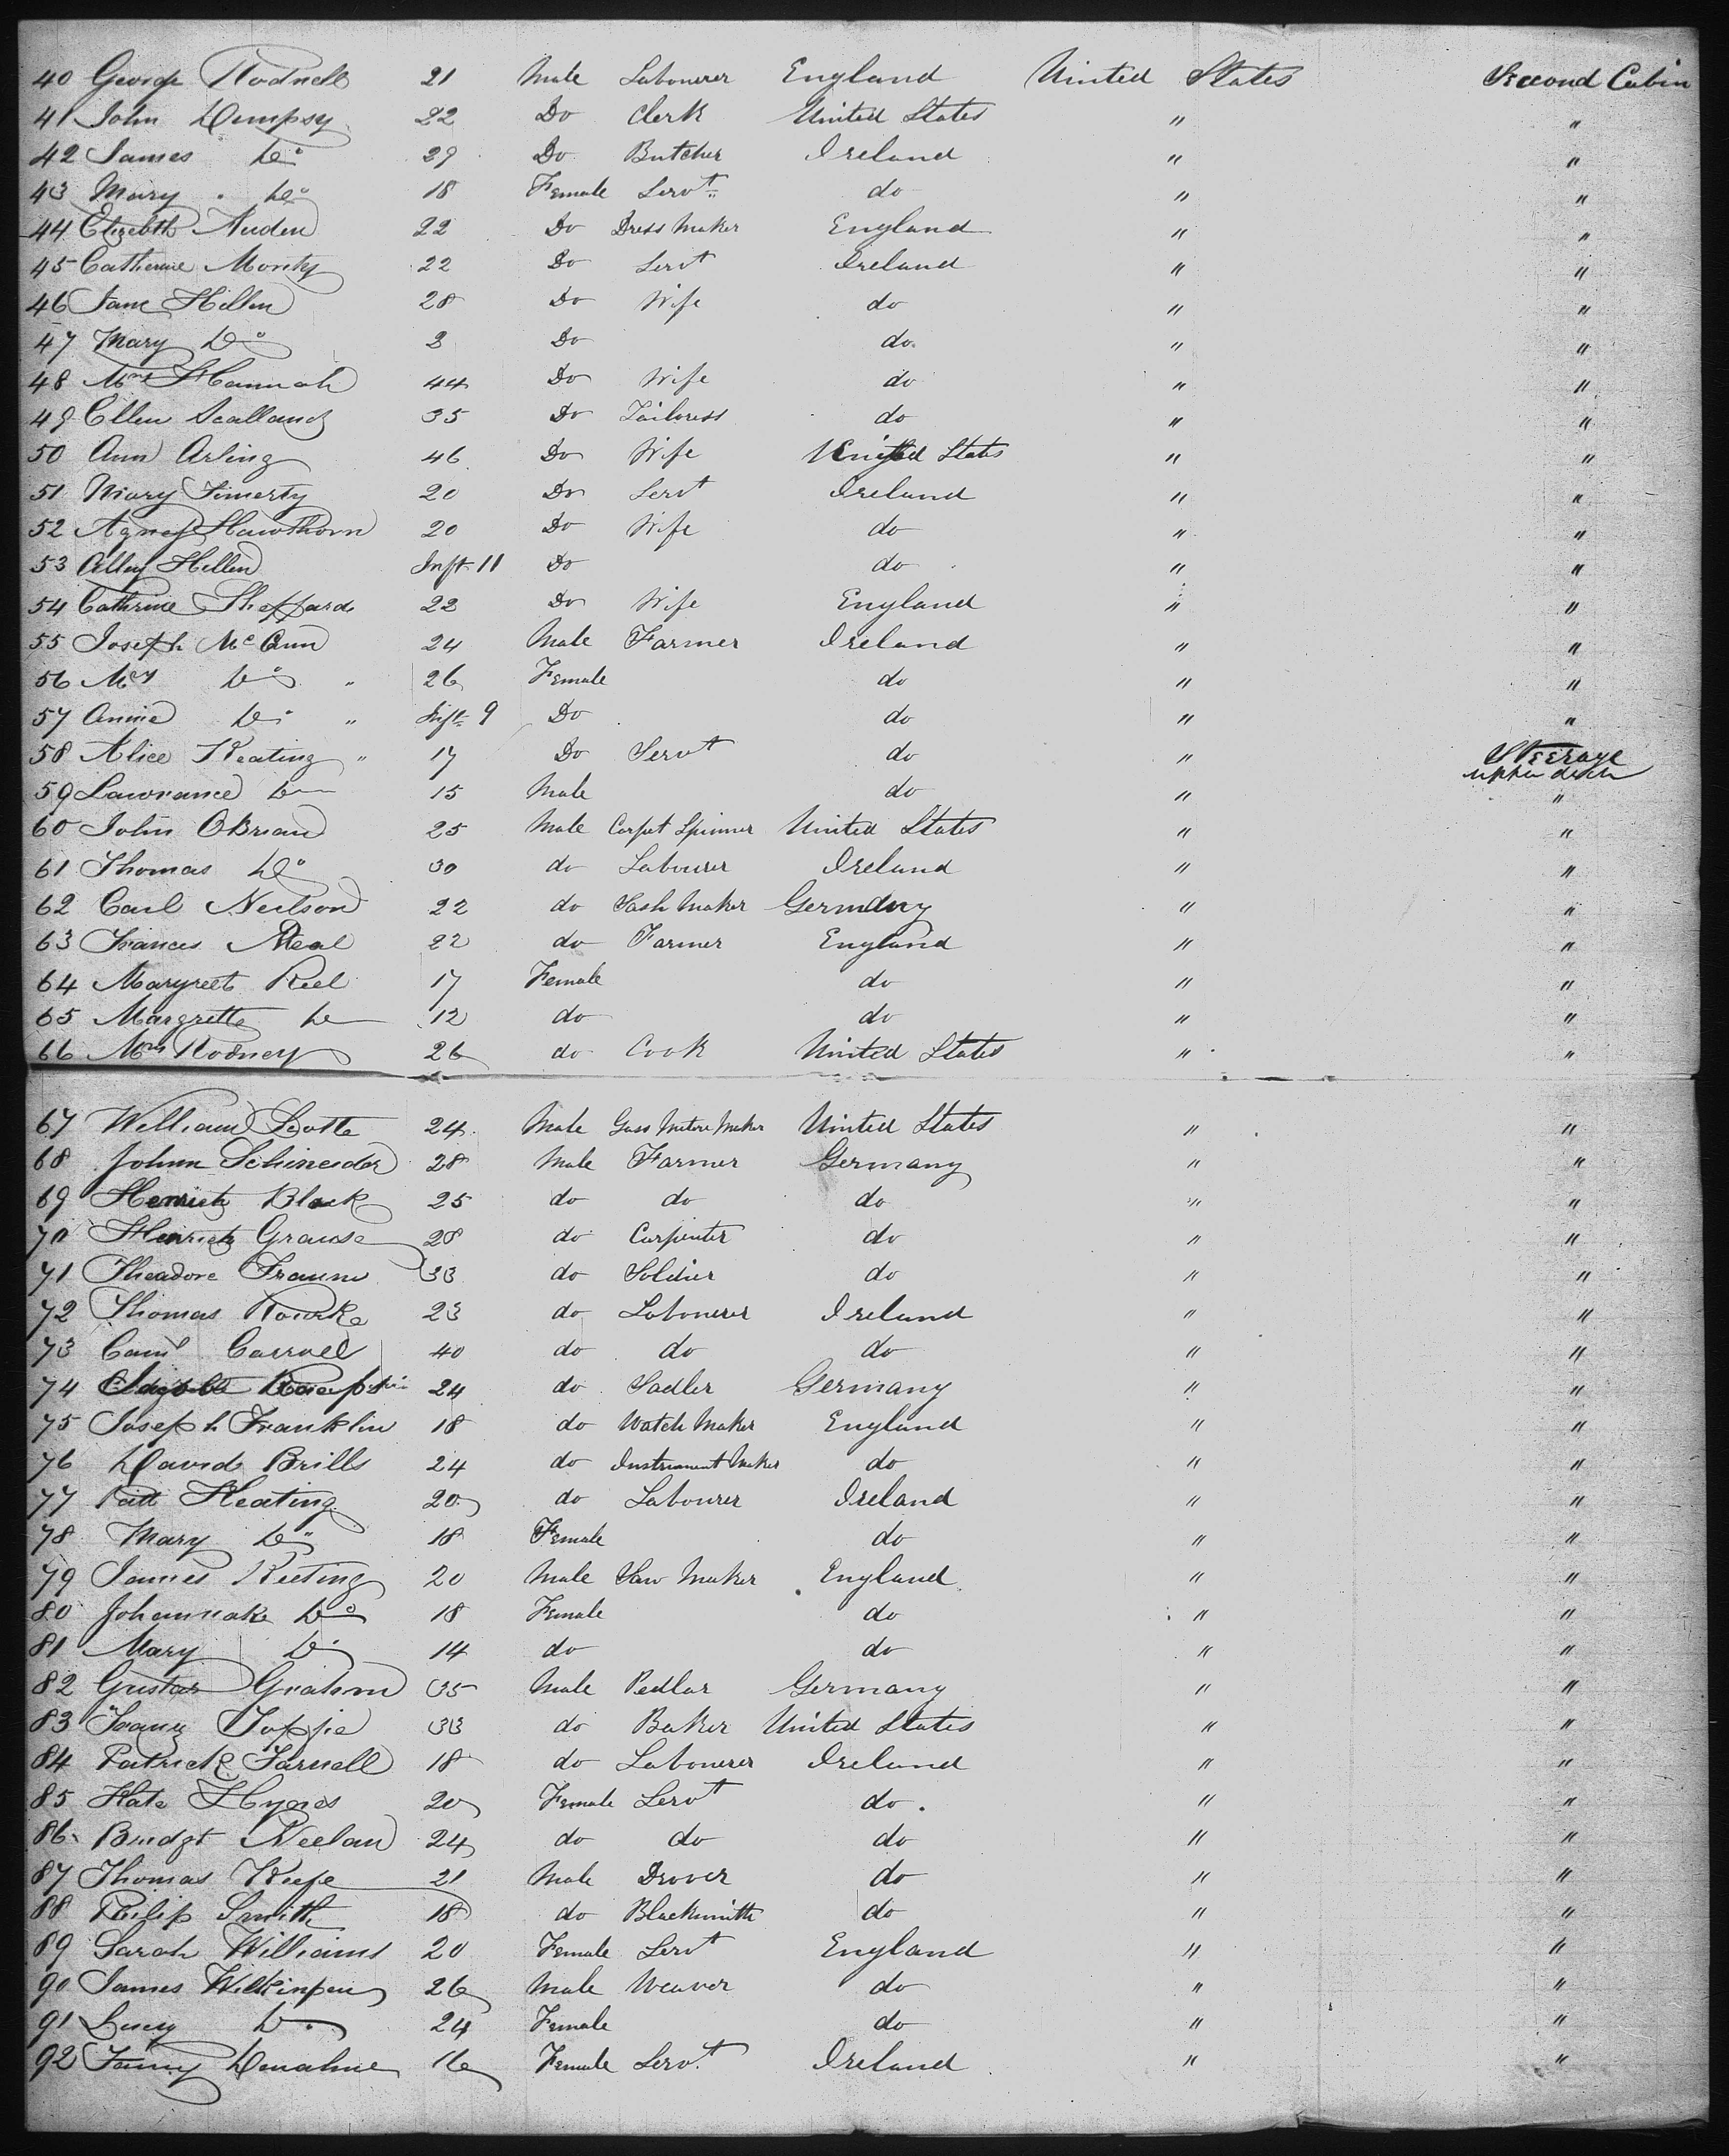 40 George Rodnell 21 Male Labourer England United States Second Cabin
41 John Dempsy 22 Do Clerk United States " "
42 James Do 29 Do Butcher Ireland " "
43 Mary " Do 18 Female Servt do " "
44 Elizebth Auden 22 Do Dress Maker England " "
45 Catherine Monty 22 Do Servt Ireland " "
46 Jane Hillen 28 Do Wife do " "
47 Mary Do 3 Do do " "
48 Mrs Hannah 44 Do Wife do " "
49 Ellen 35 Do Tailoress do " "
50 Ann Arling 46 Do Wife United States " "
51 Mary Finerty 20 Do Servt Ireland " "
52 Agness Hawthorn 20 Do Wife do " "
53 Alley Hillen Inft 11 Do do " "
54 Cathrine Sheppard 22 Do Wife England " "
55 Joseph McCann 24 Male Farmer Ireland " "
56 Mrs Do " 26 Female do " "
57 Annie Do " Inft 9 Do do " "
58 Alice Keating " 17 Do Servt do " Steerage
upper deck
59 Lawrance Do 15 Male do " "
60 John OBrian 25 Male Carpet Spinner United States " "
61 Thomas Do 30 do Labourer Ireland " "
62 Carl Neilson 22 do Sash Maker Germany " "
63 Frances Neal 22 do Farmer England " "
64 Margreet Reel 17 Female do " "
65 Margrette Do 12 do do " "
66 Mrs Rodney 26 do Cook United States " "
67 William Botte 24 Male Gass Metre Maker United States " "
68 Johnn Schineider 28 Male Farmer Germany " "
69 Henrich Black 25 do do do " "
70 Henrich Grause 28 do Carpenter do " "
71 Theadore Fraum 33 do Soldier do " "
72 Thomas Rourke 23 do Labourer Ireland " "
73 Carroll 40 do do do " "
74 24 do Sadler Germany " "
75 Joseph Franklin 18 do Watch Maker England " "
76 David Brills 24 do Instrument Maker do " "
77 Patt Keating 20 do Labourer Ireland " "
78 Mary Do 18 Female do " "
79 James Keeting 20 Male Saw Maker England " "
80 Johannah Do 18 Female do " "
81 Mary Do 14 do do " "
82 Gustav Grahm 35 Male Pedlar Germany " "
83 Franz Joppie 33 do Baker United States " "
84 Patrick Farnell 18 do Labourer Ireland " "
85 Kate Hynes 20 Female Servt do " "
86 Bridgt Neelan 24 do do do " "
87 Thomas Keefe 21 Male Drover do " "
88 Philip Smith 18 do Blacksmith do " "
89 Sarah Williams 20 Female Servt England " "
90 James Wilkinson 26 Male Weaver do " "
91 Lucy Do 24 Female do " "
92 Fanny Donahue 16 Female Servt Ireland " "